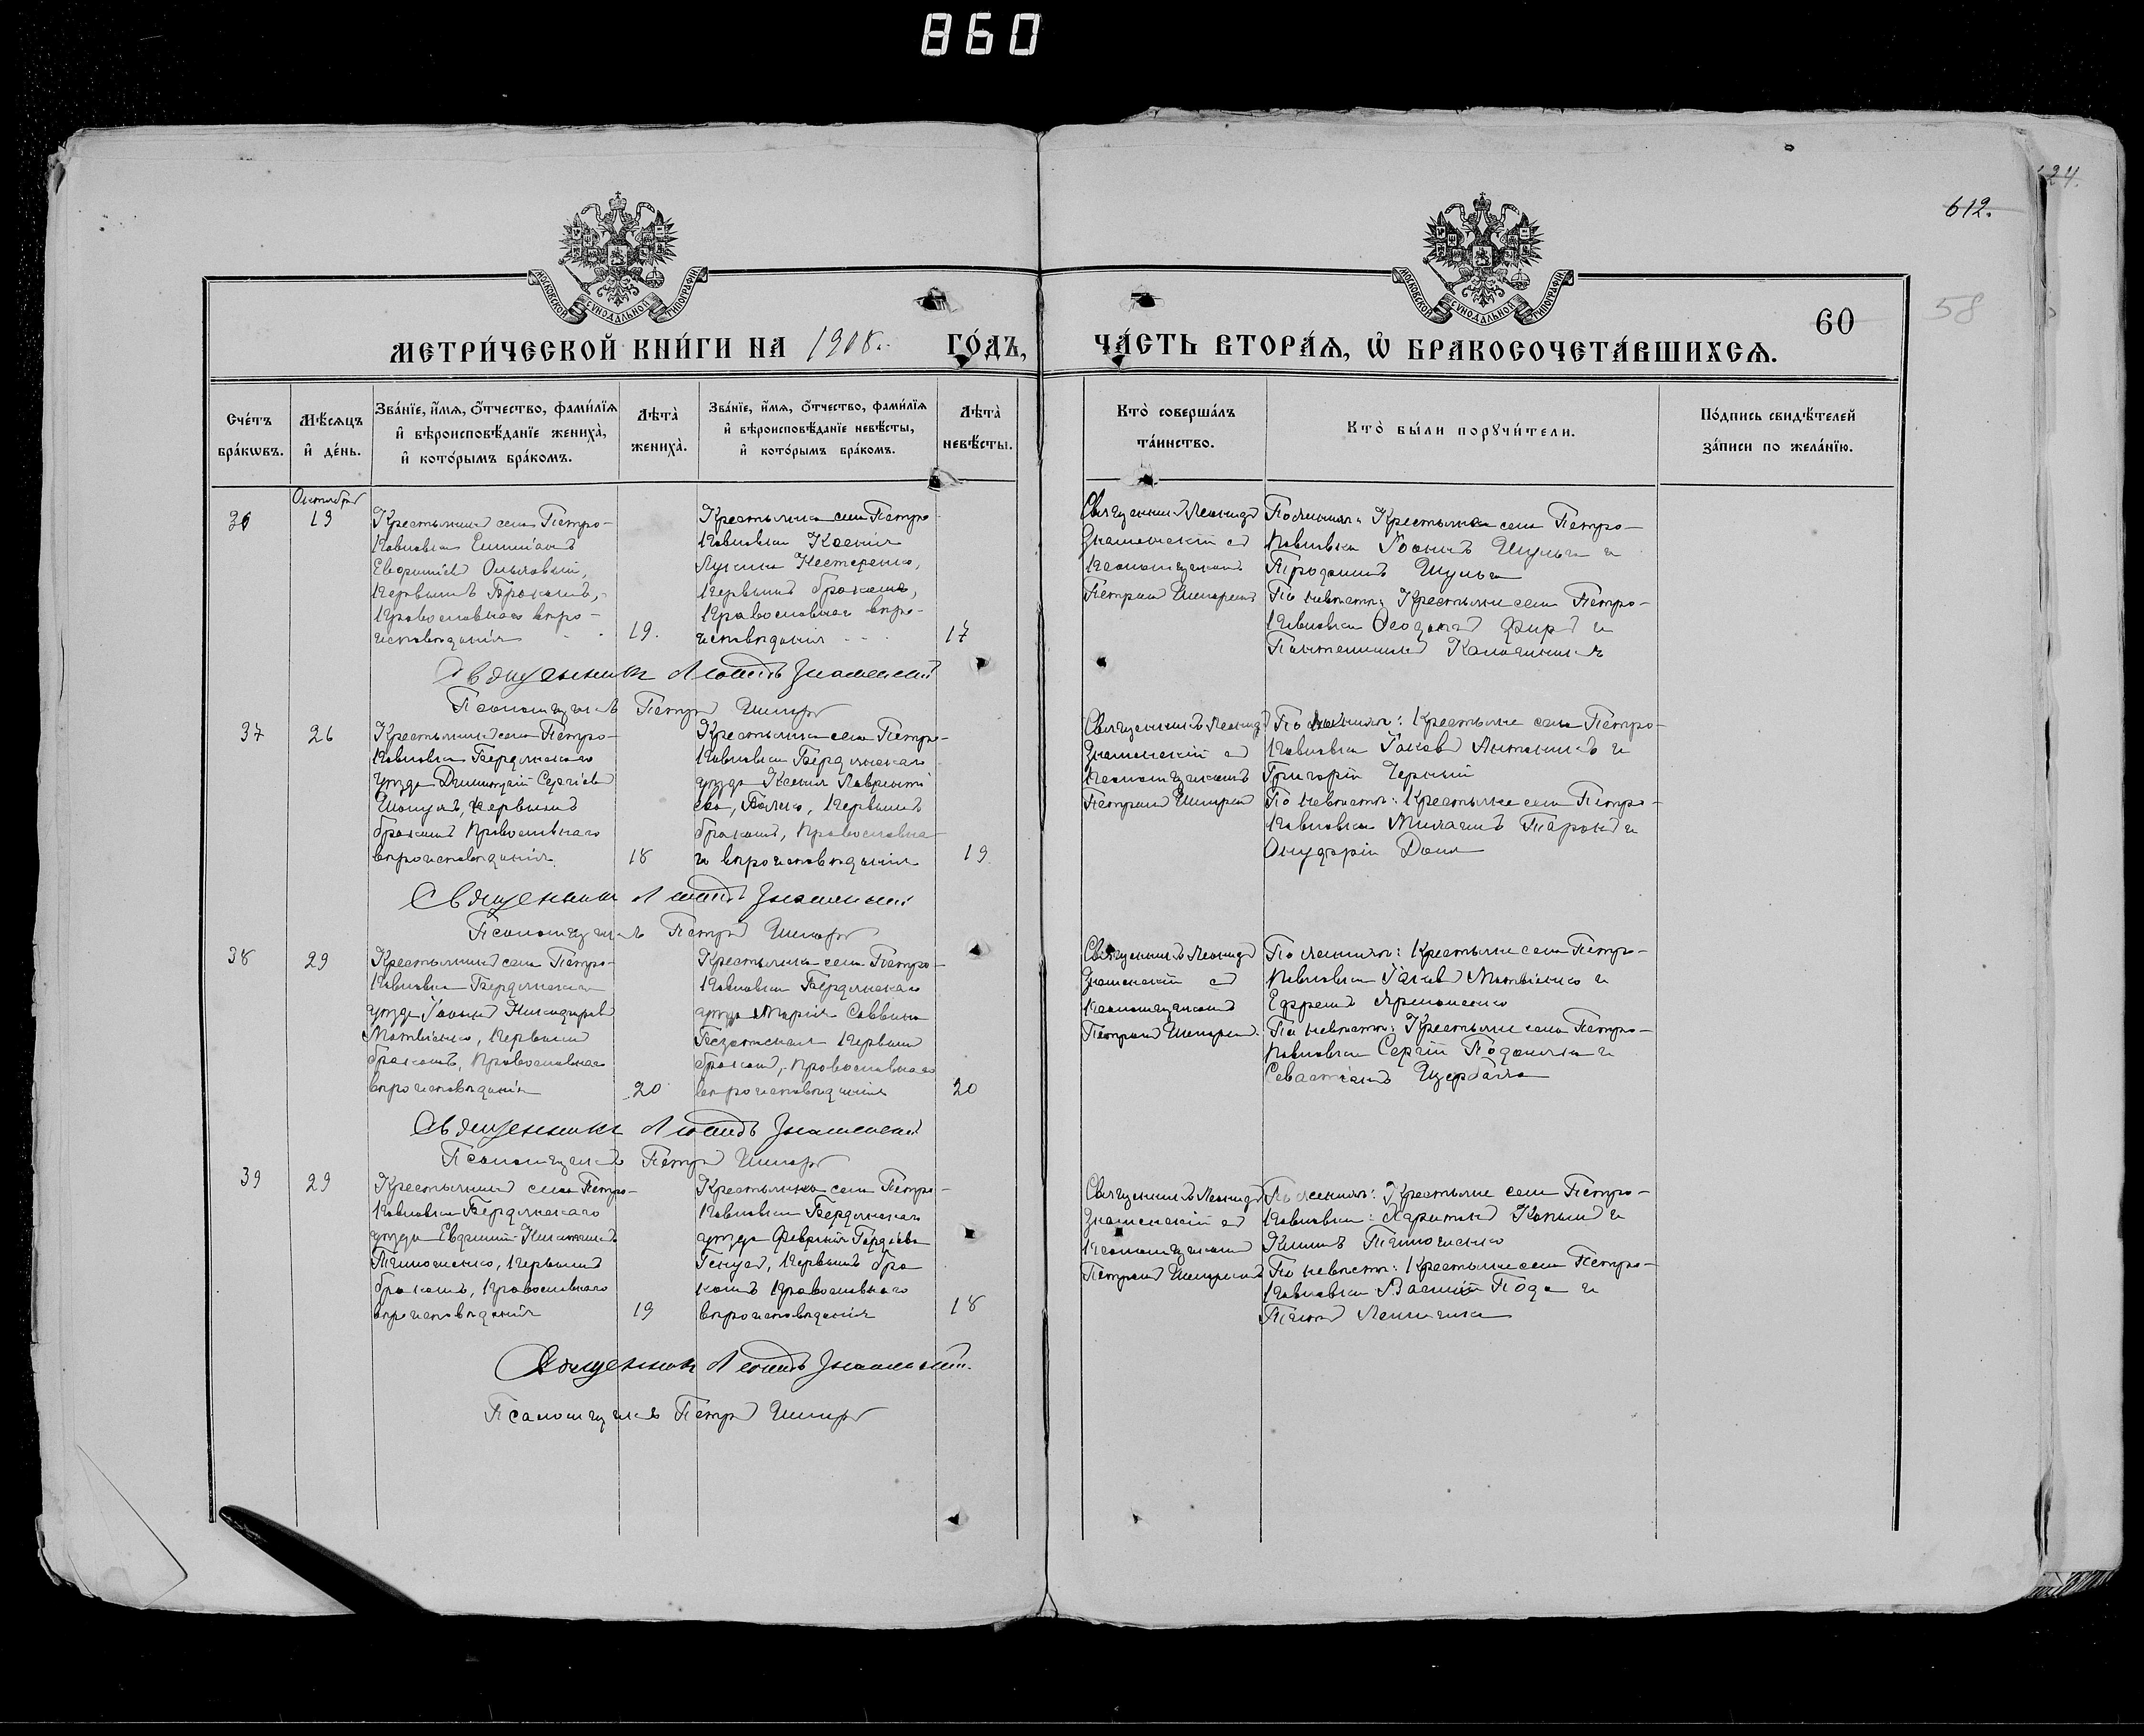 860
24.
612.
58
60
МОСКОВСКОЙ СѴНОДАЛЬНОЙ ТИПОГРАФІИ
МОСКОВСКОЙ СѴНОДАЛЬНОЙ ТИПОГРАФІИ
МЕТРИ́ЧЕСКОЙ КНИ́ГИ НА 1908. ГО́ДЪ,
ЧА́СТЬ ВТОРА́Я, Ѡ҆ БРАКОСОЧЕТА́ВШИХСЯ.
Сче́тъ бра́кѡвъ.
Мѣ́сяцъ и҆ де́нь.
Зва́нїе, и҆́мя, ѻ҆́тчество, фами́лїя и҆ вѣроисповѣ́данїе жениха̀, и҆ кото́рымъ бра́комъ.
Лѣта̀ жениха̀.
Зва́нїе, и҆́мя, ѻ҆́тчество, фами́лїя и҆ вѣроисповѣ́данїе невѣ́сты, и҆ кото́рымъ бра́комъ.
Лѣта̀ невѣ́сты.
Кто̀ соверша́лъ та́инство.
Кто̀ бы́ли порꙋчи́тели.
По́дпись свидѣ́телей за́писи по жела́нїю.
Октября
36
19
Крестьянинъ села Петро-
павловки
первымъ бракомъ,
православнаго вѣро-
исповѣданія
19.
Крестьянка села Петро
павловки Ксенія
Лукина Нестеренко,
первымъ бракомъ,
православнаго вѣро-
исповѣданія
17
Священникъ Леонидъ
Знаменскій съ
псаломщикомъ
Петромъ
По женихѣ: Крестьяне села Петро-
павловки Іоаннъ Шульга и
Шульга
По невѣстѣ: Крестьяне села Петро-
павловки
Пантелиимонъ
Священникъ Леонидъ Знаменскій
Псаломщикъ Петръ
37
26
Крестьянинъ села Петро-
павловки Бердянскаго
уѣзда Димитрій Сергіевъ
первымъ
бракомъ православнаго
вѣроисповѣданія.
18
Крестьянка села Петро-
павловки Бердянскаго
уѣзда Ксенія Лавренті
ева, первымъ
бракомъ, православна
го вѣроисповѣданія
19
Священникъ Леонидъ
Знаменскій съ
псаломщикомъ
Петромъ
По женихѣ: Крестьяне села Петро-
павловки Іаковъ и
Григорій Черный
По невѣстѣ: Крестьяне села Петро-
павловки Михаилъ и
Онуфрій
Священникъ Леонидъ Знаменскій
Псаломщикъ Петръ
38
29
Крестьянинъ села Петро-
павловки Бердянскаго
уѣзда Іоаннъ Никифоровъ
Матвіенко, первымъ
бракомъ, православнаго
вѣроисповѣданія
20
Крестьянка села Петро-
павловки Бердянскаго
уѣзда Марія Саввина
первымъ
бракомъ, православнаго
вѣроисповѣданія
20
Священникъ Леонидъ
Знаменскій съ
псаломщикомъ
Петромъ
По женихѣ: Крестьяне села Петро-
павловки Іаковъ Матвіенко и
Ефремъ Ярмоленко
По невѣстѣ: Крестьяне села Петро-
павловки Сергій и
Севастіанъ Щербина
Священникъ Леонидъ Знаменскій
Псаломщикъ Петръ
39
29
Крестьянинъ села Петро-
павловки Бердянскаго
уѣзда Евфимій
Тимошенко, первымъ
бракомъ, православнаго
вѣроисповѣданія
19
Крестьянка села Петро-
павловки Бердянскаго
уѣзда Февронія Гордіева
первымъ бра
комъ православнаго
вѣроисповѣданія
18
Священникъ Леонидъ
Знаменскій съ
псаломщикомъ
Петромъ
По женихѣ: Крестьяне села Петро-
павловки: Харитонъ и
Климъ Тимошенко
По невѣстѣ: Крестьяне села Петро-
павловки Василій и
Священникъ Леонидъ Знаменскій.
Псаломщикъ Петръ